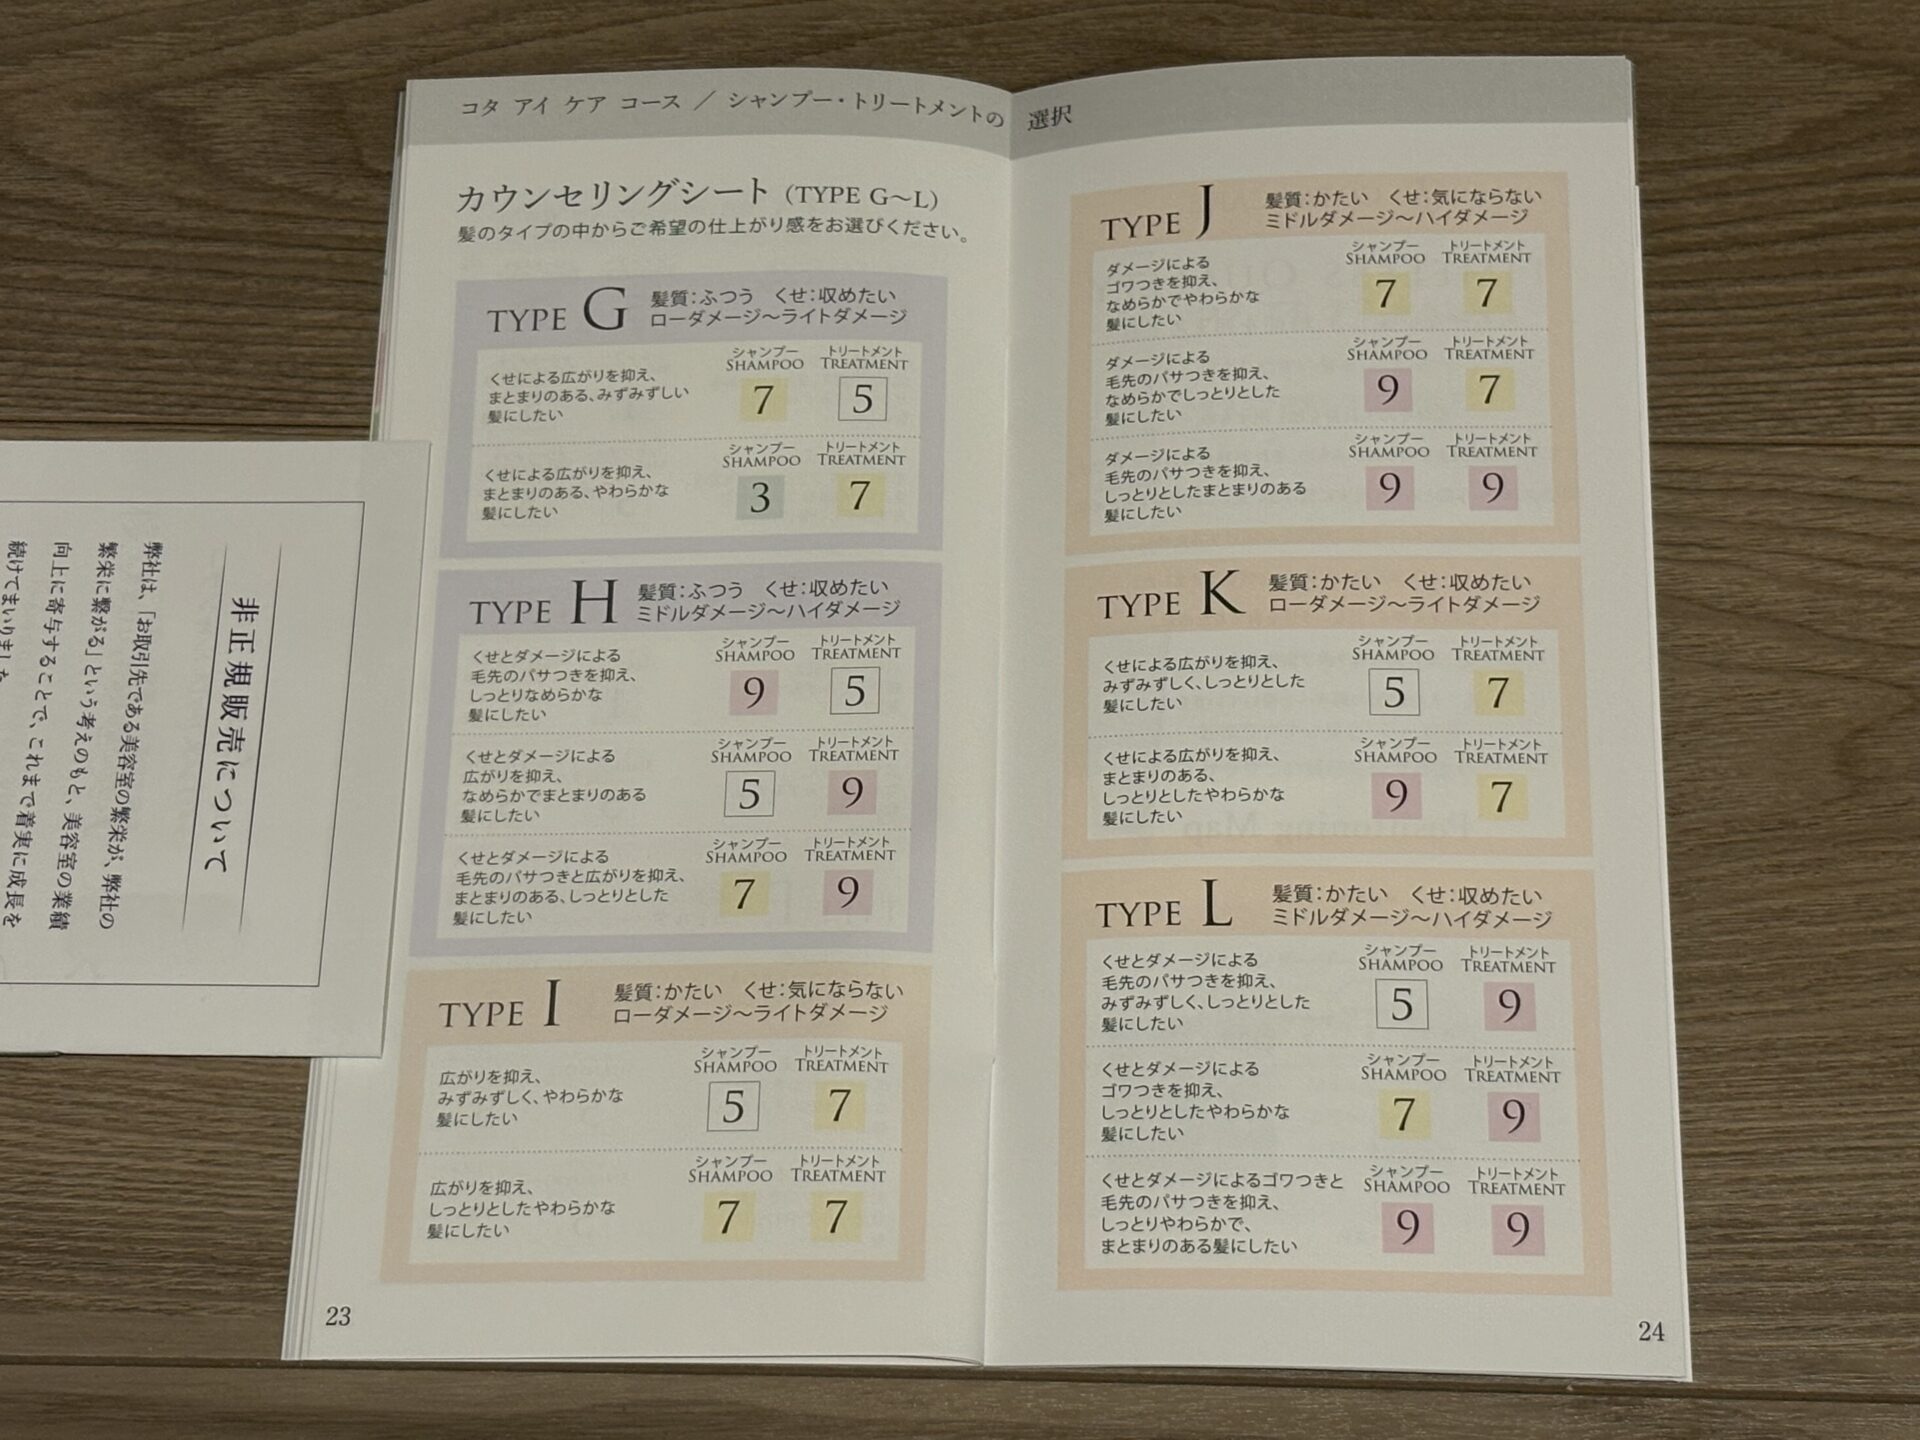 コタ アイ ケア コース / シャンプー・トリートメントの 選択
カウンセリングシート (TYPE G～L)
髪のタイプの中からご希望の仕上がり感をお選びください。
TYPE G
髪質：ふつう くせ：収めたい
ローダメージ～ライトダメージ
くせによる広がりを抑え、
まとまりのある、みずみずしい
髪にしたい
シャンプー トリートメント
SHAMPOO TREATMENT
7 5
くせによる広がりを抑え、
まとまりのある、やわらかな
髪にしたい
シャンプー トリートメント
SHAMPOO TREATMENT
3 7
TYPE H
髪質：ふつう くせ：収めたい
ミドルダメージ～ハイダメージ
くせとダメージによる
毛先のパサつきを抑え、
しっとりなめらかな
髪にしたい
シャンプー トリートメント
SHAMPOO TREATMENT
9 5
くせとダメージによる
広がりを抑え、
なめらかでまとまりのある
髪にしたい
シャンプー トリートメント
SHAMPOO TREATMENT
5 9
くせとダメージによる
毛先のパサつきと広がりを抑え、
まとまりのある、しっとりとした
髪にしたい
シャンプー トリートメント
SHAMPOO TREATMENT
7 9
TYPE I
髪質：かたい くせ：気にならない
ローダメージ～ライトダメージ
広がりを抑え、
みずみずしく、やわらかな
髪にしたい
シャンプー トリートメント
SHAMPOO TREATMENT
5 7
広がりを抑え、
しっとりとしたやわらかな
髪にしたい
シャンプー トリートメント
SHAMPOO TREATMENT
7 7
23
TYPE J
髪質：かたい くせ：気にならない
ミドルダメージ～ハイダメージ
ダメージによる
ゴワつきを抑え、
なめらかでやわらかな
髪にしたい
シャンプー トリートメント
SHAMPOO TREATMENT
7 7
ダメージによる
毛先のパサつきを抑え、
なめらかでしっとりとした
髪にしたい
シャンプー トリートメント
SHAMPOO TREATMENT
9 7
ダメージによる
毛先のパサつきを抑え、
しっとりとしたまとまりのある
髪にしたい
シャンプー トリートメント
SHAMPOO TREATMENT
9 9
TYPE K
髪質：かたい くせ：収めたい
ローダメージ～ライトダメージ
くせによる広がりを抑え、
みずみずしく、しっとりとした
髪にしたい
シャンプー トリートメント
SHAMPOO TREATMENT
5 7
くせによる広がりを抑え、
まとまりのある、
しっとりとしたやわらかな
髪にしたい
シャンプー トリートメント
SHAMPOO TREATMENT
9 7
TYPE L
髪質：かたい くせ：収めたい
ミドルダメージ～ハイダメージ
くせとダメージによる
毛先のパサつきを抑え、
みずみずしく、しっとりとした
髪にしたい
シャンプー トリートメント
SHAMPOO TREATMENT
5 9
くせとダメージによる
ゴワつきを抑え、
しっとりとしたやわらかな
髪にしたい
シャンプー トリートメント
SHAMPOO TREATMENT
7 9
くせとダメージによるゴワつきと
毛先のパサつきを抑え、
しっとりやわらかで、
まとまりのある髪にしたい
シャンプー トリートメント
SHAMPOO TREATMENT
9 9
24
非正規販売について
弊社は、「お取引先である美容室の繁栄が、弊社の
繁栄に繋がる」という考えのもと、美容室の業績
向上に寄与することで、これまで着実に成長を
続けてまいりました